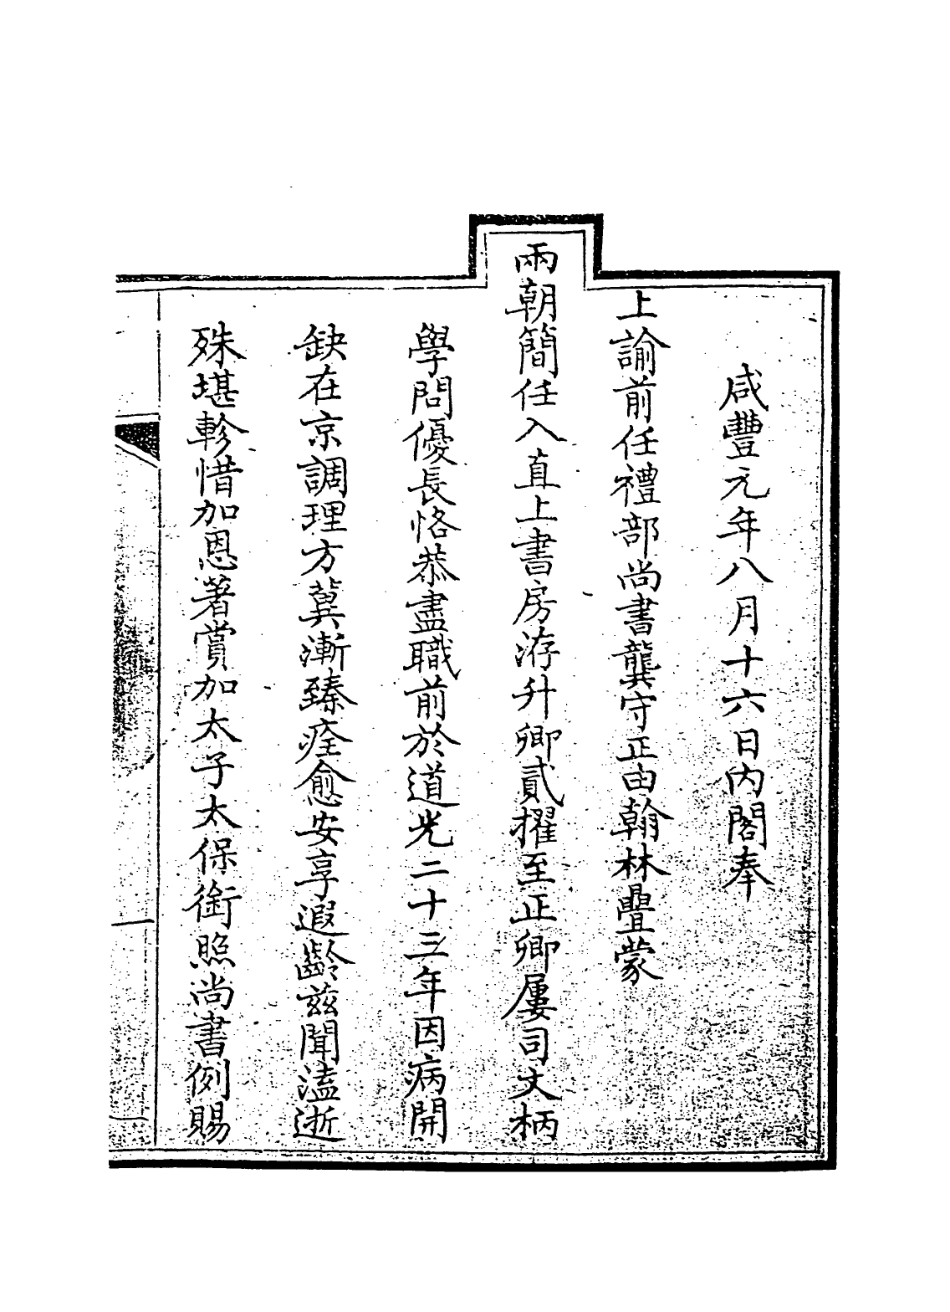 咸豐元年八月十六日內閣奉
上諭前任禮部尚書龔守正由翰林疊蒙
兩朝簡任入直上書房洊升卿貳擢至正卿屢司文柄
學問優長恪恭盡職前於道光二十三年因病開
缺在京調理方冀漸臻痊愈安享遐齡茲聞溘逝
殊堪軫惜加恩著賞加太子太保銜照尚書例賜